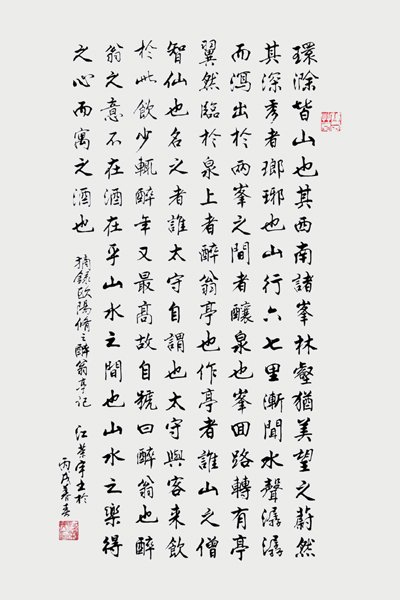 環滁皆山也其西南諸峯林壑猶美望之蔚然
其深秀者瑯琊也山行六七里漸聞水聲潺潺
而瀉出於兩峯之間者釀泉也峯回路轉有亭
翼然臨於泉上者醉翁亭也作亭者誰山之僧
智仙也名之者誰太守自謂也太守與客來飲
於此飲少輒醉年又最高故自號曰醉翁也醉
翁之意不在酒在乎山水之間也山水之樂得
之心而寓之酒也
摘録歐陽脩之醉翁亭記
於
丙戌暮春